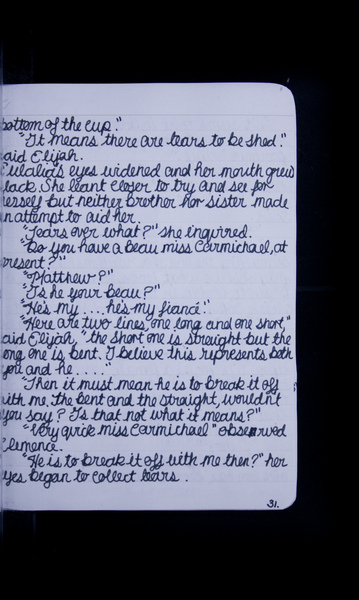 bottom of the cup."
"It means there are tears to be shed."
aid Elijah.
Eulalia's eyes widened and her mouth grew
lack. She leant closer to try and see for
erself but neither brother nor sister made
n attempt to aid her.
"Tears over what?" she inquired.
"Do you have a beau miss Carmichael, at
present?"
"Matthew?"
"Is he your beau?"
"He's my .... he's my fiancé."
"Here are two lines, one long and one short,"
aid Elijah, "the short one is straight but the
ong one is bent. I believe this represents both
you and he ...."
"Then it must mean he is to break it off
with me. The bent and the straight, wouldn't
you say? Is that not what it means?"
"Very quick miss Carmichael" observed
Clemence.
"He is to break it off with me then?" her
eyes began to collect tears.
31.